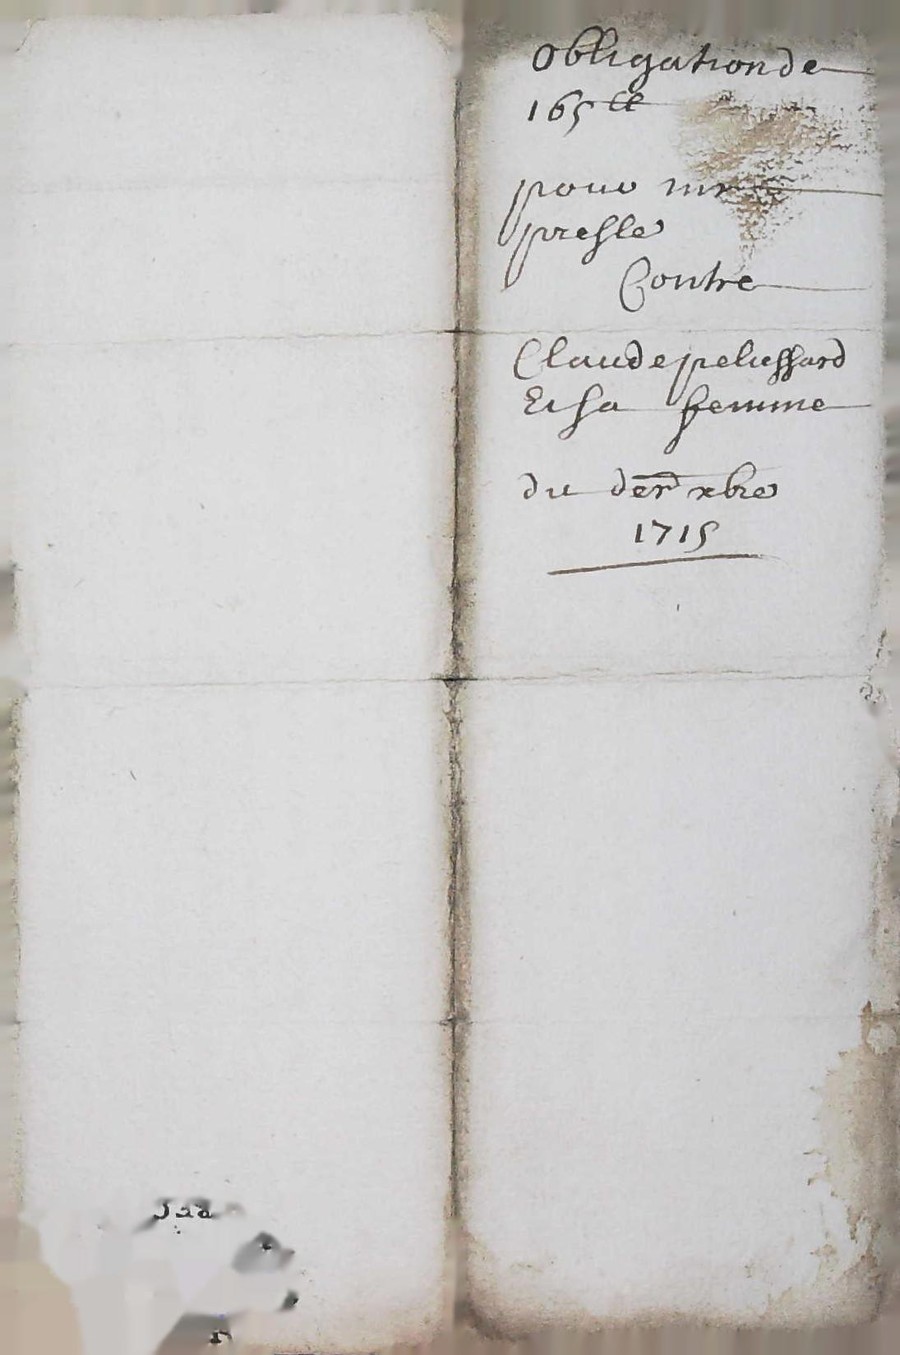 Obligation de
165 ll
pour mr
presle
Contre
Claude pelussard
Et sa femme
du der xbre
1715